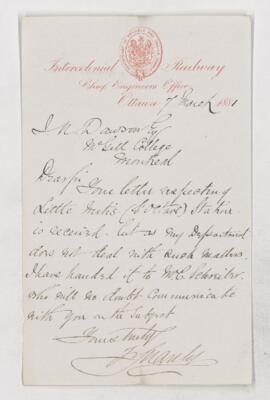 Intercolonial Railway
Chief Engineers Office
Ottawa 7 March 1881
J W Dawson Esq
McGill College
Montreal
Dear Sir
Your letter respecting
Little Metis (St Octave) Station
is received but as my Department
does not deal with such matters
I have handed it to Mr C Schreiber
who will no doubt communicate
with you on the subject
Yours truly